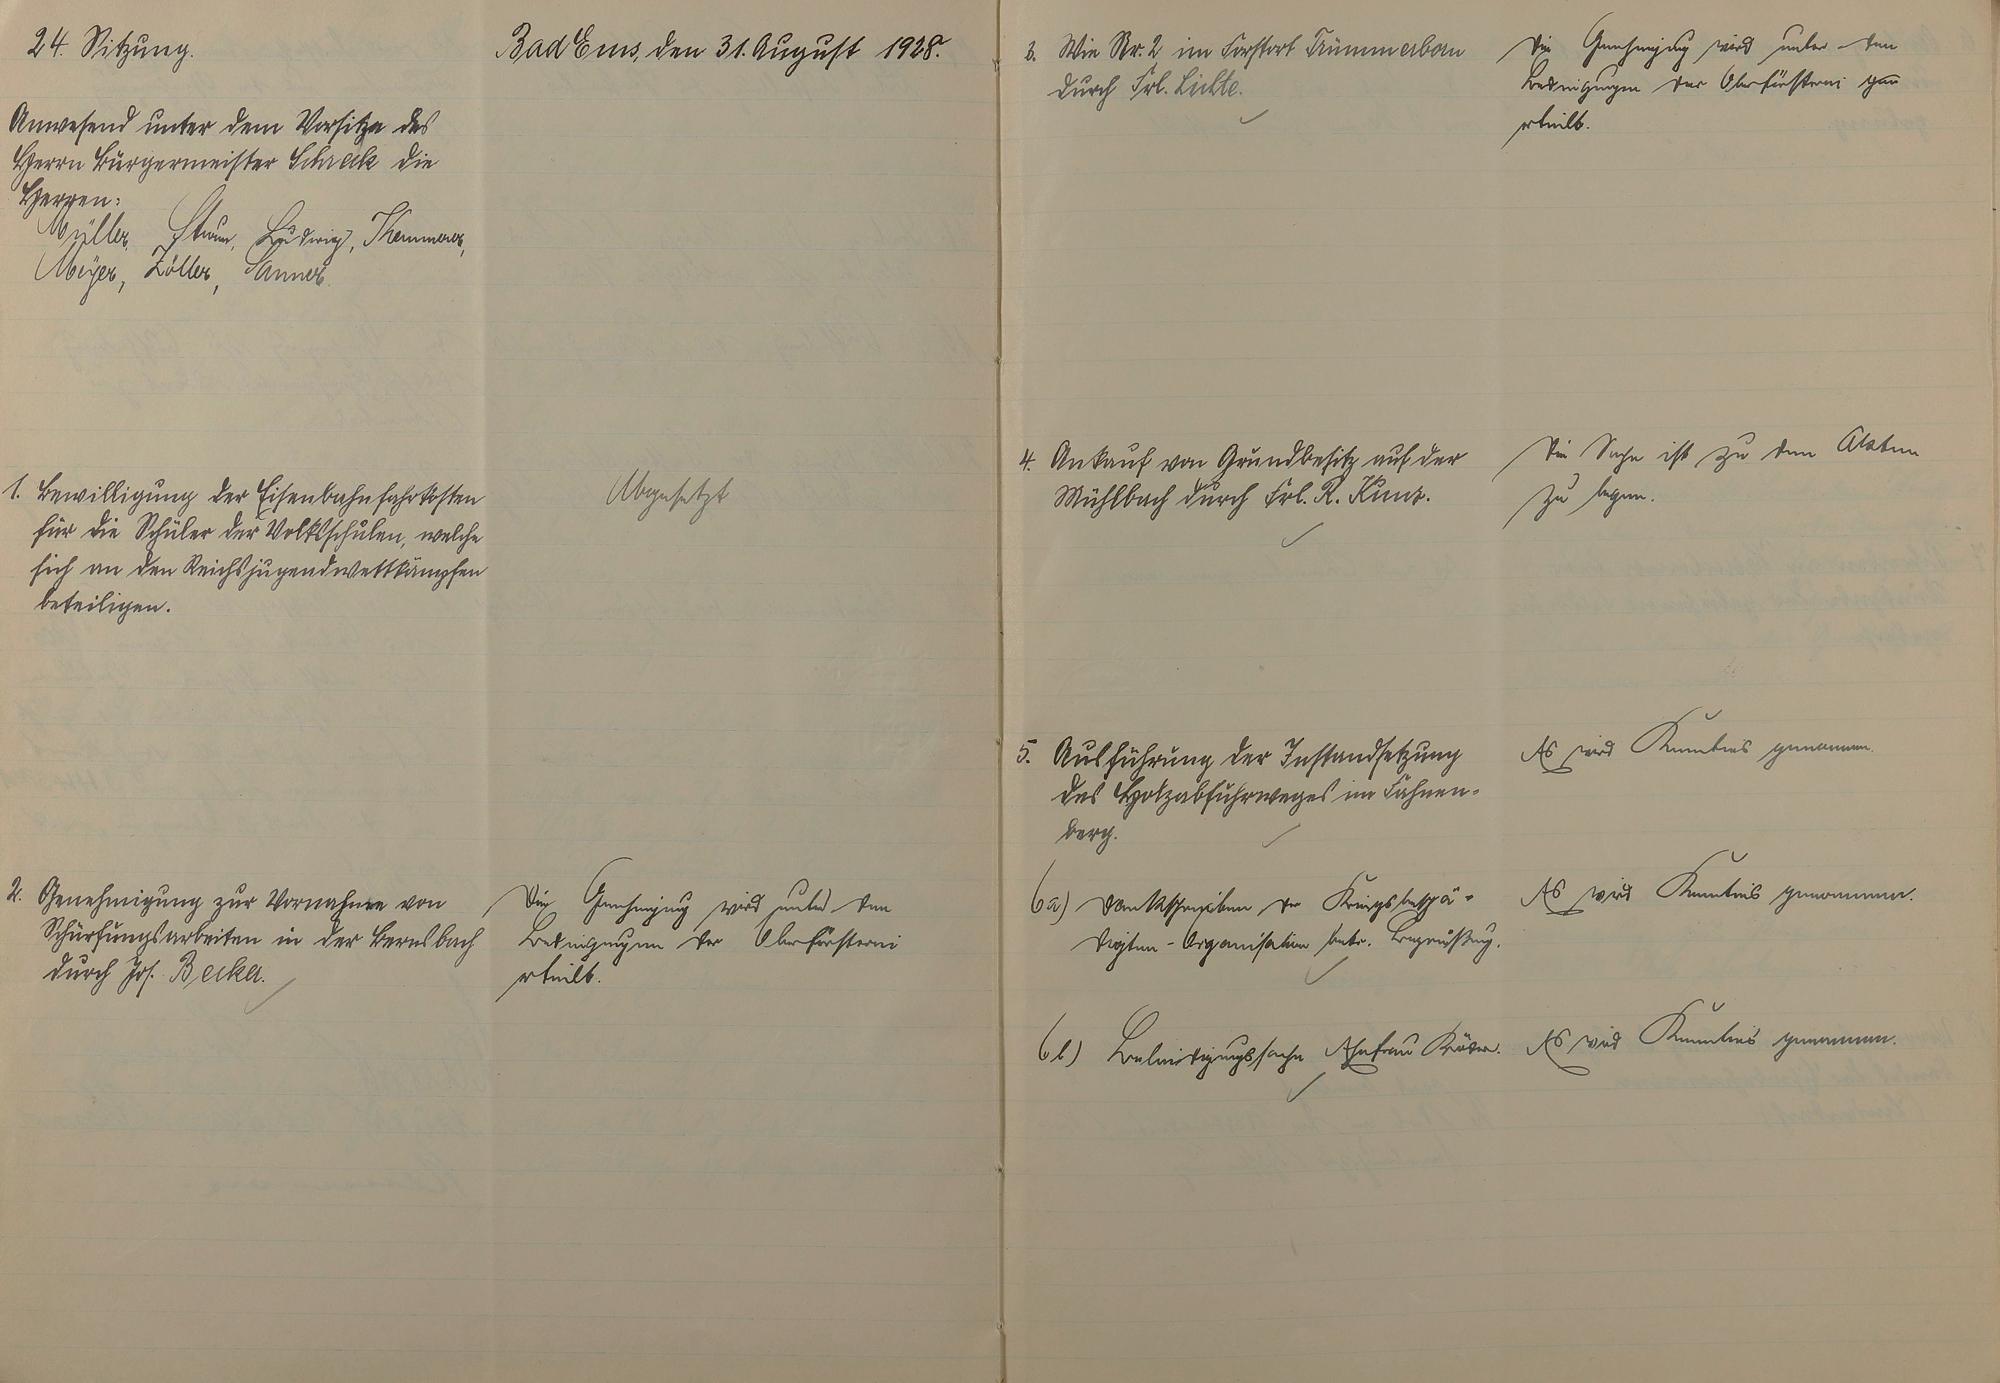 24. Sitzung.
Bad Ems, den 31. August 1928.
Anwesend unter dem Vorsitze des
Herrn Bürgermeister Schreck die
Herren:
Müller, Sturm, Ludwig, Themmer,
Meyer, Zöller, Sanner.
1. Bewilligung der Eisenbahnfahrkosten
für die Schüler der Volksschulen, welche
sich an den Reichsjugendwettkämpfen
beteiligen.
Abgesetzt
2. Genehmigung zur Vornahme von
Schürfungsarbeiten in der Bernsbach
durch Jos. Becker.
Die Genehmigung wird unter den
Bedingungen der Oberförsterei
erteilt.
3. Wie Nr. 2 im Forstort Trümmerborn
durch Frl. Lichte.
Die Genehmigung wird unter den
Bedingungen der Oberförsterei
erteilt.
4. Ankauf von Grundbesitz auf der
Mühlbach durch Frl. R. Kunz.
Die Sache ist zu den Akten
zu legen.
5. Ausführung der Instandsetzung
des Holzabfuhrweges im Fahnen-
berg.
Es wird Kenntnis genommen.
6a) Dankschreiben der Kriegsbeschä-
digten-Organisation betr. Begrüßung.
Es wird Kenntnis genommen.
6b) Beleidigungssache Ehefrau Kröber.
Es wird Kenntnis genommen.